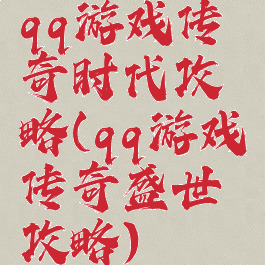 qq游戏传
奇时代攻
略(qq游戏
传奇盛世
攻略)